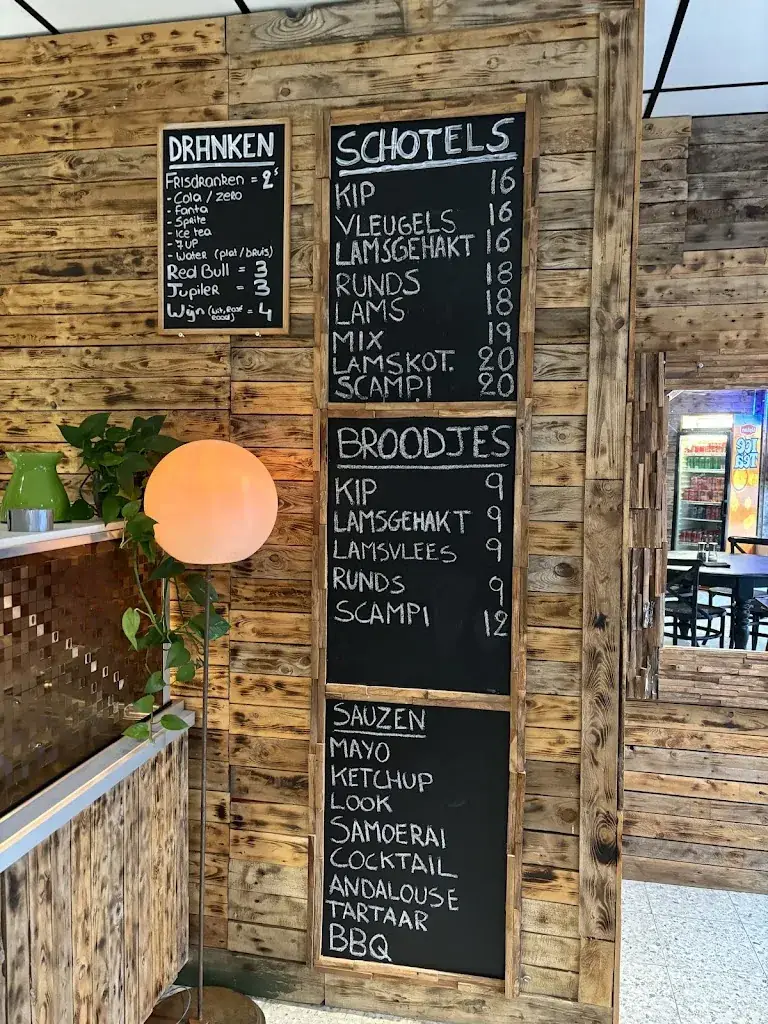 DRANKEN
Frisdranken = 2⁵
- Cola / zero
- Fanta
- Sprite
- Ice tea
- 7UP
- Water (plat/bruis)
Red Bull = 3
Jupiler = 3
Wijn (wit, rosé = 4
rood)
SCHOTELS
KIP 16
VLEUGELS 16
LAMSGEHAKT 16
RUNDS 18
LAMS 18
MIX 19
LAMSKOT. 20
SCAMPI 20
BROODJES
KIP 9
LAMSGEHAKT 9
LAMSVLEES 9
RUNDS 9
SCAMPI 12
SAUZEN
MAYO
KETCHUP
LOOK
SAMOERAI
COCKTAIL
ANDALOUSE
TARTAAR
BBQ